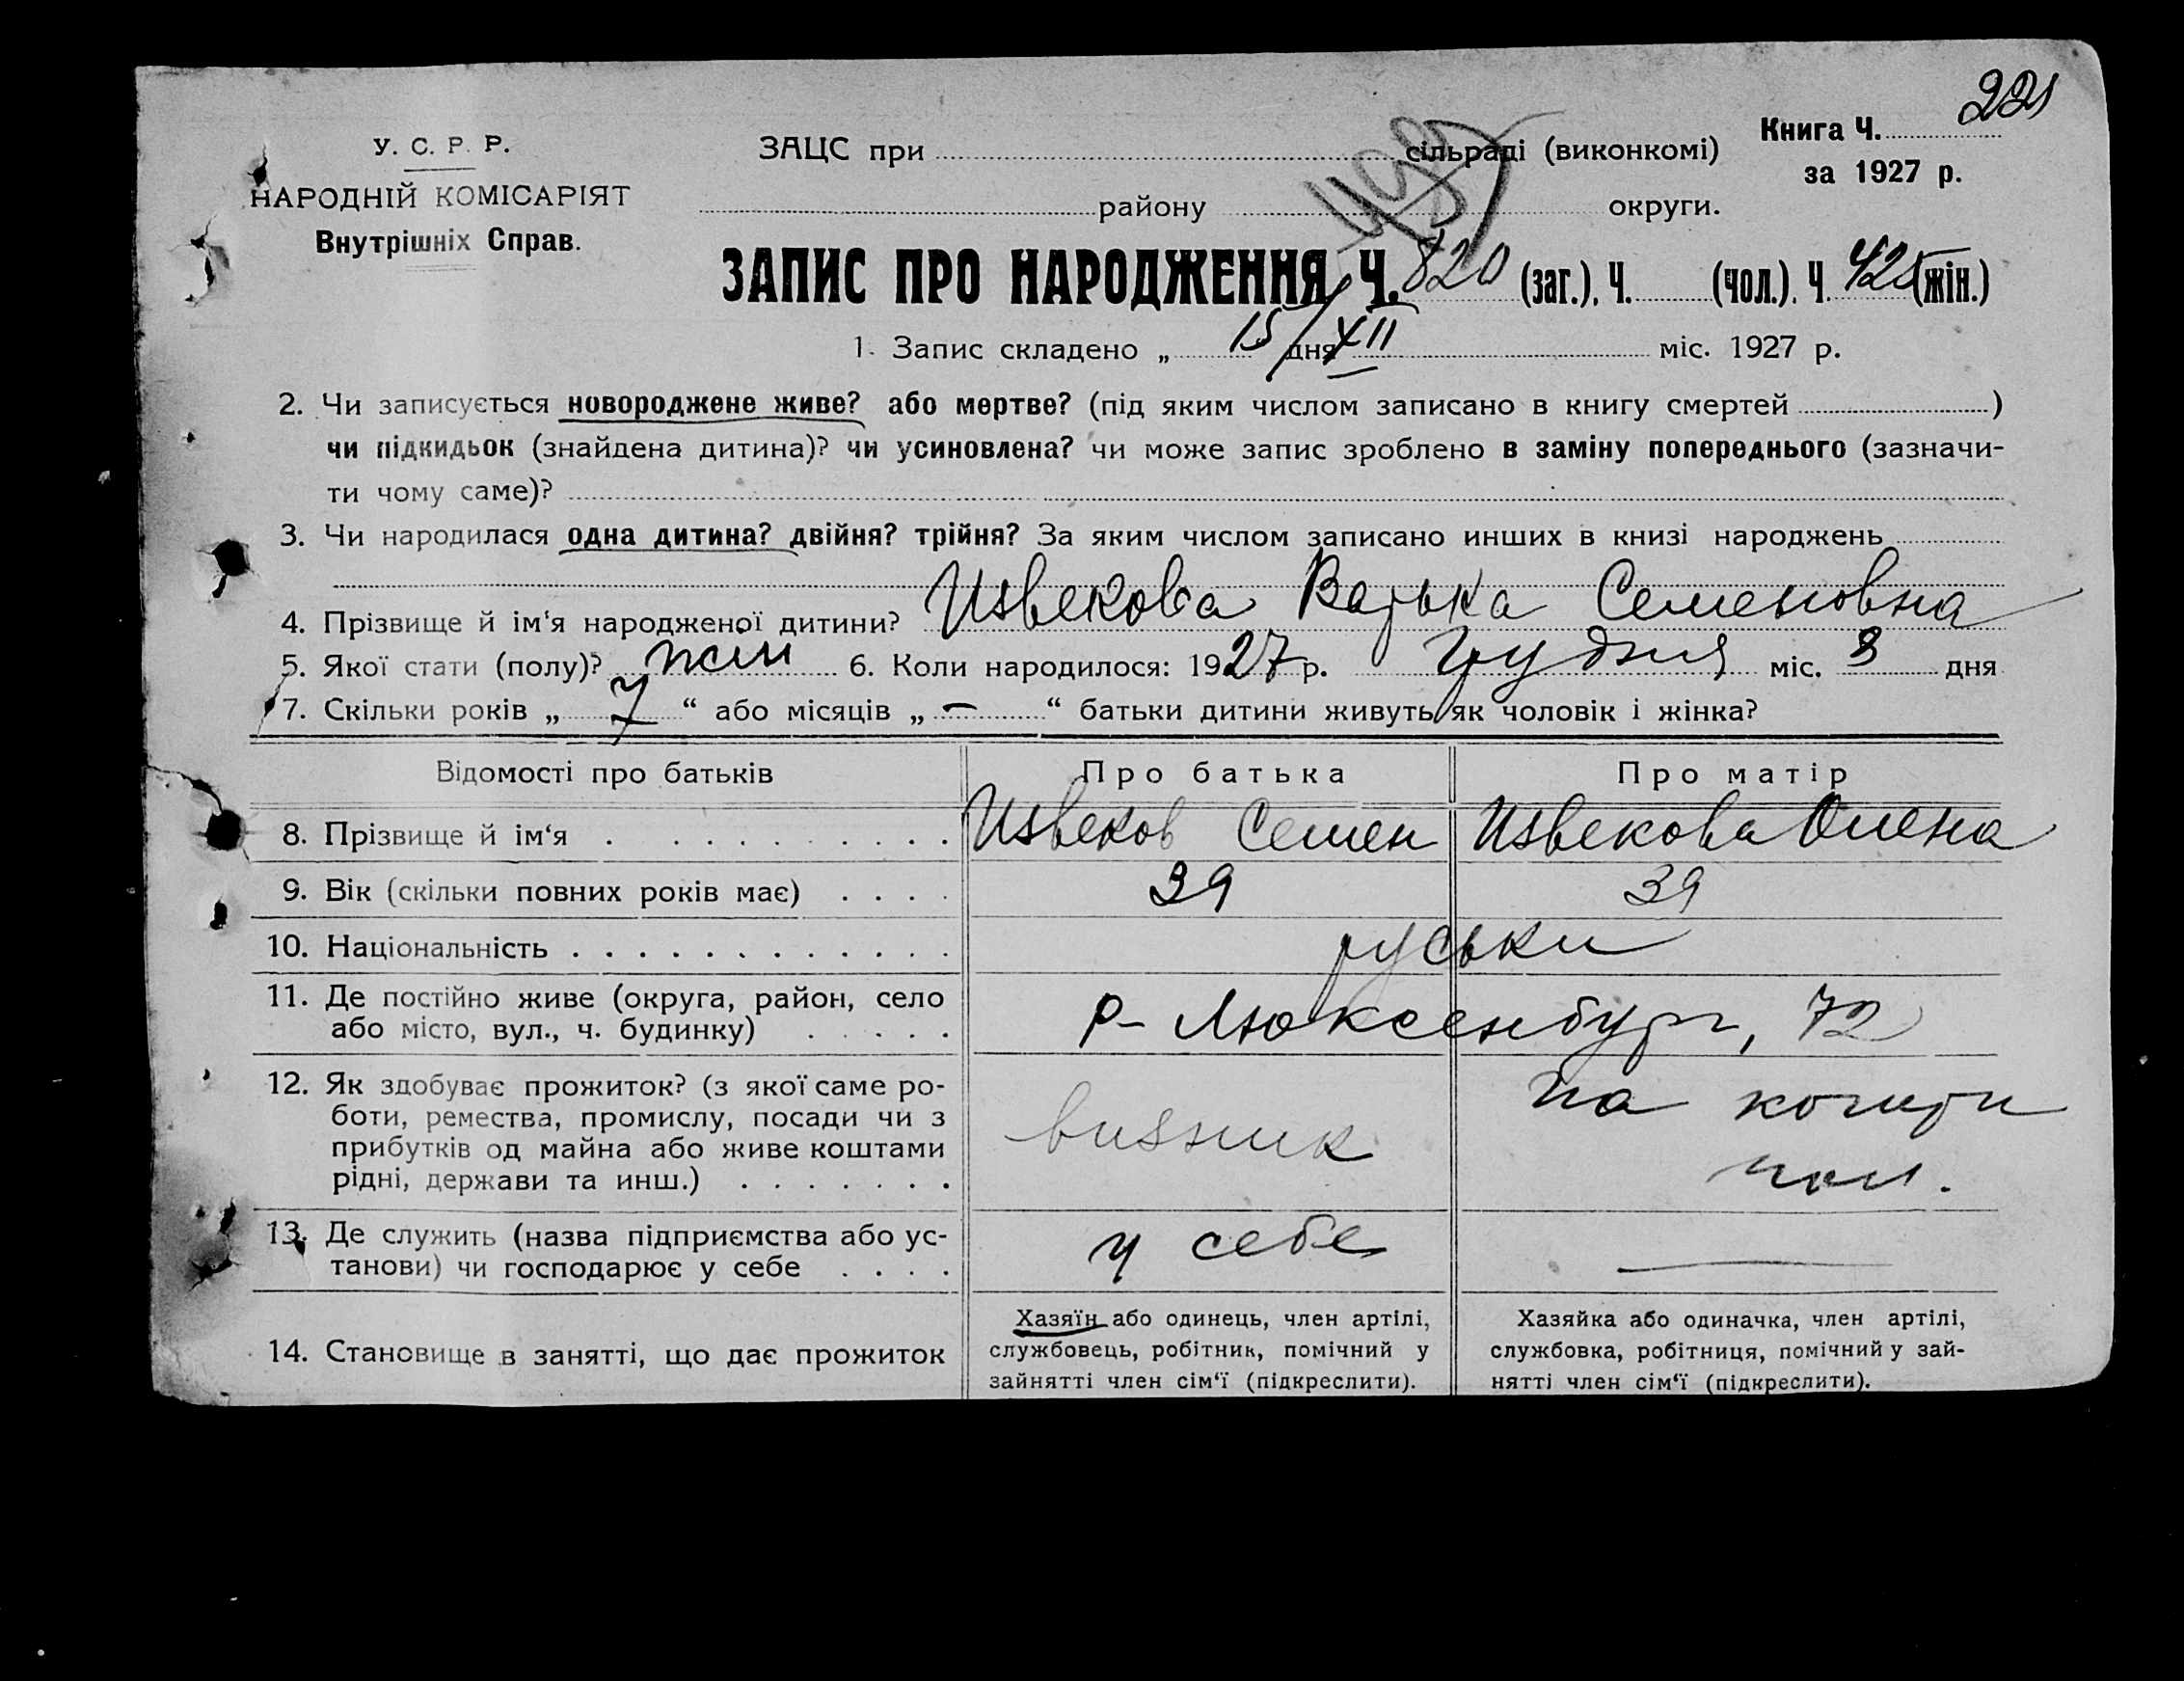 221
У. С. Р. Р.
НАРОДНІЙ КОМІСАРІЯТ
Внутрішніх Справ.
ЗАЦС при сільраді (виконкомі)
району округи.
Книга Ч.
за 1927 р.
ЗАПИС ПРО НАРОДЖЕННЯ Ч. 820 (заг.), Ч. (чол.). Ч. 420 (жін.)
1. Запис складено „ 15 / дня XII міс. 1927 р.
2. Чи записується новороджене живе? або мертве? (під яким числом записано в книгу смертей )
чи підкидьок (знайдена дитина)? чи усиновлена? чи може запис зроблено в заміну попереднього (зазначи-
ти чому саме)?
3. Чи народилася одна дитина? двійня? трійня? За яким числом записано инших в книзі народжень
4. Прізвище й ім‘я народженої дитини? Извекова Семеновна
5. Якої стати (полу)? жін 6. Коли народилося: 1927 р. Грудня міс. 8 дня
7. Скільки років „ 7 “ або місяців „ — “ батьки дитини живуть як чоловік і жінка?
Відомості про батьків Про батька Про матір
8. Прізвище й ім‘я Извеков Семен Извекова Олена
9. Вік (скільки повних років має) 39 39
10. Національність руськи
11. Де постійно живе (округа, район, село
або місто, вул., ч. будинку) Р- Люксенбург, 72
12. Як здобуває прожиток? (з якої саме ро-
боти, ремества, промислу, посади чи з
прибутків од майна або живе коштами
рідні, держави та инш.) визник на кошти чол.
13. Де служить (назва підприємства або ус-
танови) чи господарює у себе у себе —
14. Становище в занятті, що дає прожиток
Хазяїн або одинець, член артілі,
службовець, робітник, помічний у
зайнятті член сім‘ї (підкреслити).
Хазяйка або одиначка, член артілі,
службовка, робітниця, помічний у зай-
нятті член сім‘ї (підкреслити).